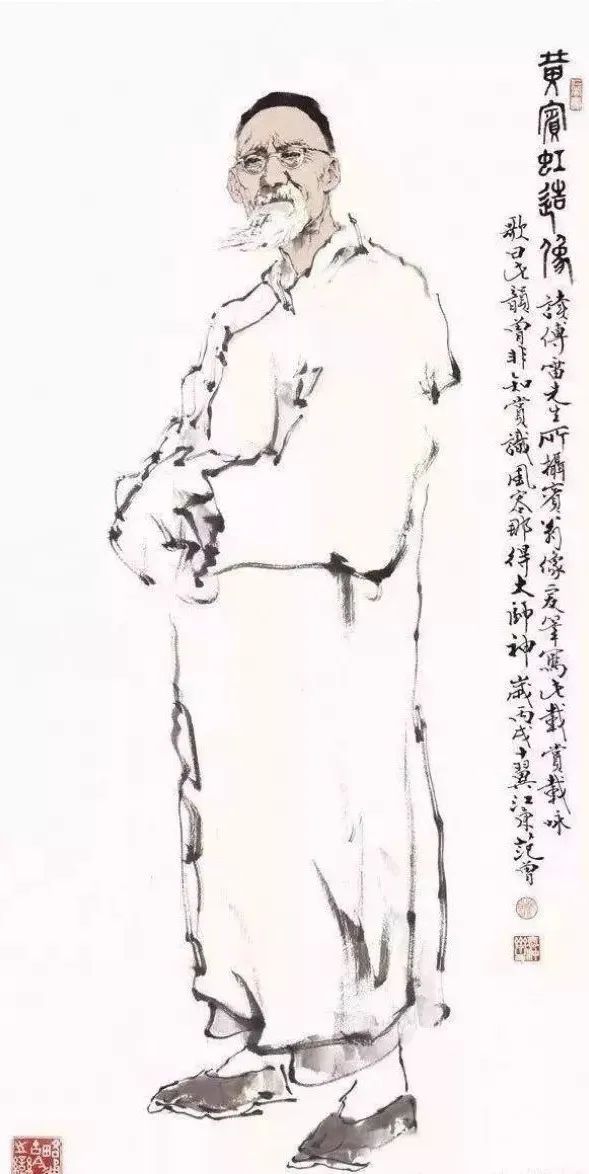 黄賓虹造像 讀傅雷先生所攝賓翁像爰筆寫此載賞載咏
歌曰此韻曾非知賞識風容那得大師神 歲丙戌十翼江東范曾